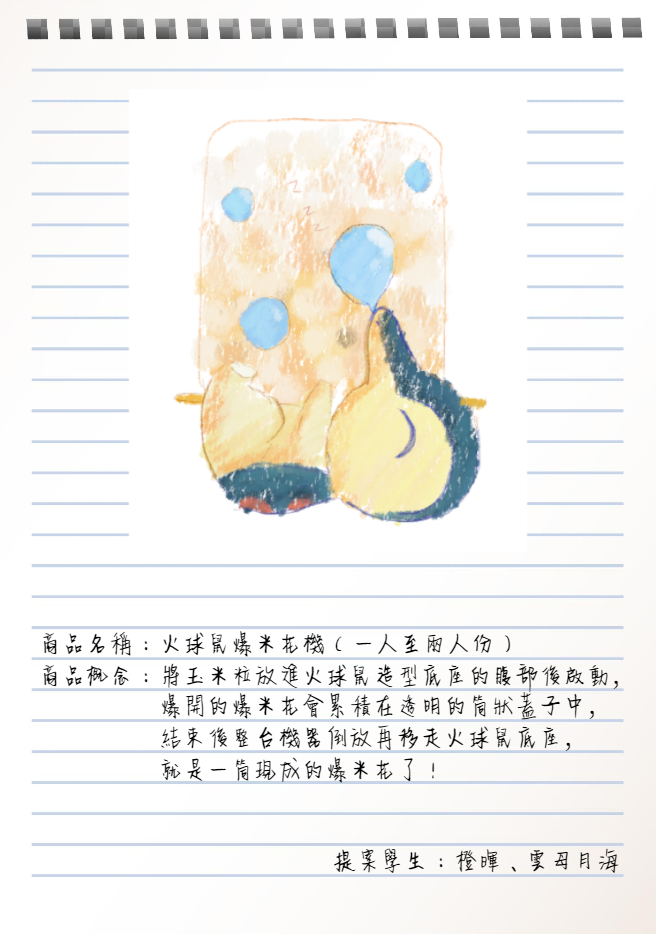 z
z
z
商品名稱：火球鼠爆米花機（一人至兩人份）
商品概念：將玉米粒放進火球鼠造型底座的腹部後啟動，
爆開的爆米花會累積在透明的筒狀蓋子中，
結束後整台機器倒放再移走火球鼠底座，
就是一筒現成的爆米花了！
提案學生：橙暉、雲母月海